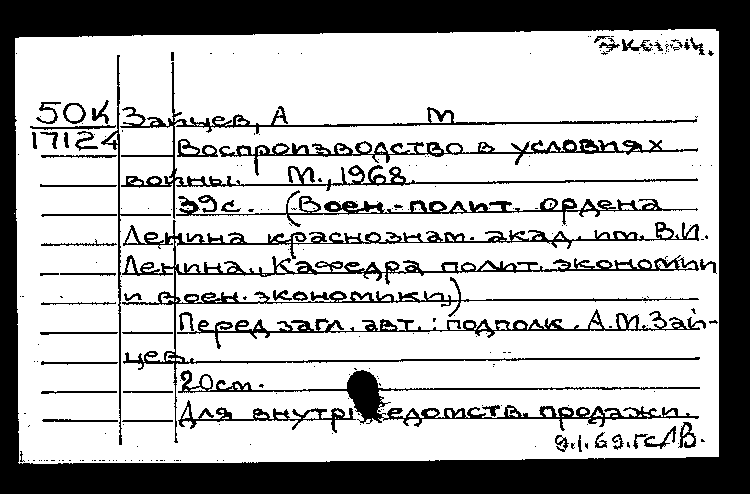 Эконом.
50К Зайцев, А М
17124
Воспроизводство в условиях
войны. М., 1968.
39с. (Воен.-полит. ордена
Ленина краснознам. акад. им. В.И.
Ленина. Кафедра полит. экономии
и воен. экономики).
Перед загл. авт.: подполк. А.М. Зай-
цев.
20см.
Для внутриведомств. продажи.
9.1.69.